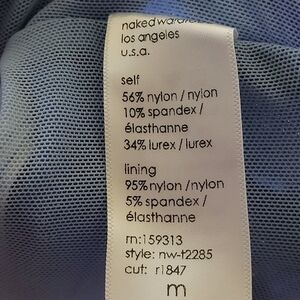 naked wardrobe
los angeles
u.s.a.
self
56% nylon / nylon
10% spandex /
élasthanne
34% lurex / lurex
lining
95% nylon / nylon
5% spandex /
élasthanne
rn:159313
style: nw-t2285
cut: r1847
m